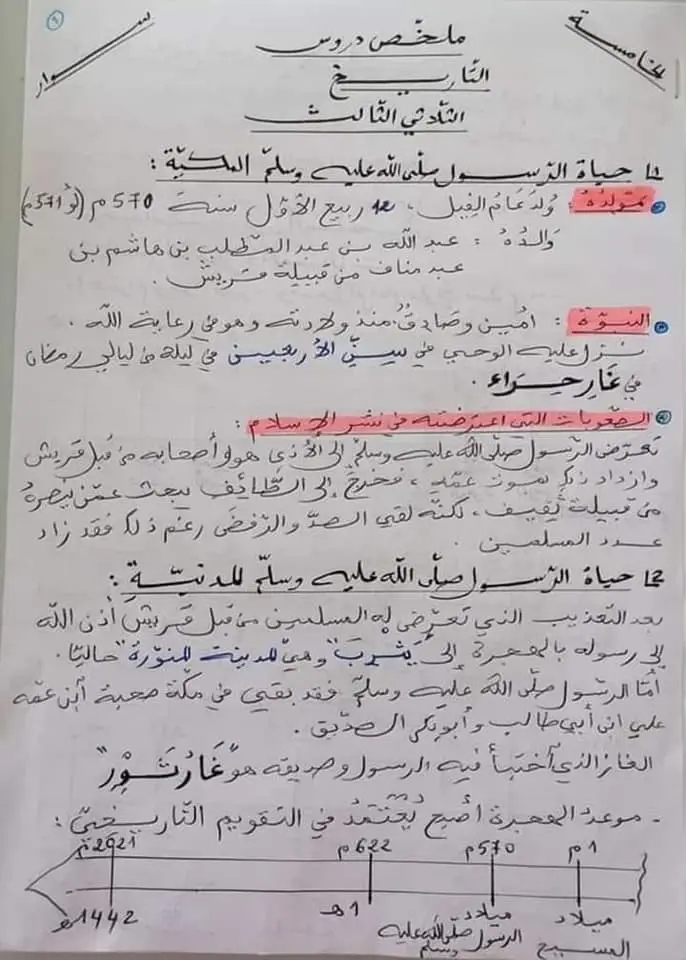 الخامسة
سوار
ملخّص دروس
التّاريخ
الثّلاثي الثّالث
1/ حياة الرّسول صلّى الله عليه وسلّم المكيّة :
مولده : وُلد عام الفيل ، 12 ربيع الأوّل سنة 570 م (أو 571م)
والدُهُ : عبد الله بن عبد المطلب بن هاشم بن
عبد مناف من قبيلة قريش .
النبوّة : أمين وصادق منذ ولادته وهو في رعاية الله .
نزل عليه الوحي في سنّ الأربعين في ليلة من ليالي رمضان
في غار حراء .
الصّعوبات التي اعترضته في نشر الإسلام :
تعرّض الرّسول صلّى الله عليه وسلّم إلى الأذى هو وأصحابه من قبل قريش
وازداد ذلك بموت عمّه ، فخرج إلى الطّائف يبحث عمّن ينصره
من قبيلة ثقيف ، لكنّه لقي الصدّ والرّفض رغم ذلك فقد زاد
عدد المسلمين .
2/ حياة الرّسول صلّى الله عليه وسلّم المدنيّة :
بعد التعذيب الذي تعرّض له المسلمين من قبل قريش أذن الله
إلى رسوله بالهجرة إلى "يثرب" وهي "المدينة المنوّرة" حاليّا .
أمّا الرسول صلّى الله عليه وسلّم فقد بقي في مكّة صحبة ابن عمّه
علي ابن أبي طالب وأبو بكر الصدّيق .
الغار الذي اختبأ فيه الرسول وصديقه هو "غار ثور"
- موعد الهجرة أصبح يُعتمد في التقويم التّاريخيّ :
م1 م570 م622 م2021
ميلاد المسيح ميلاد الرسول صلّى الله عليه وسلّم 1هـ 1442هـ